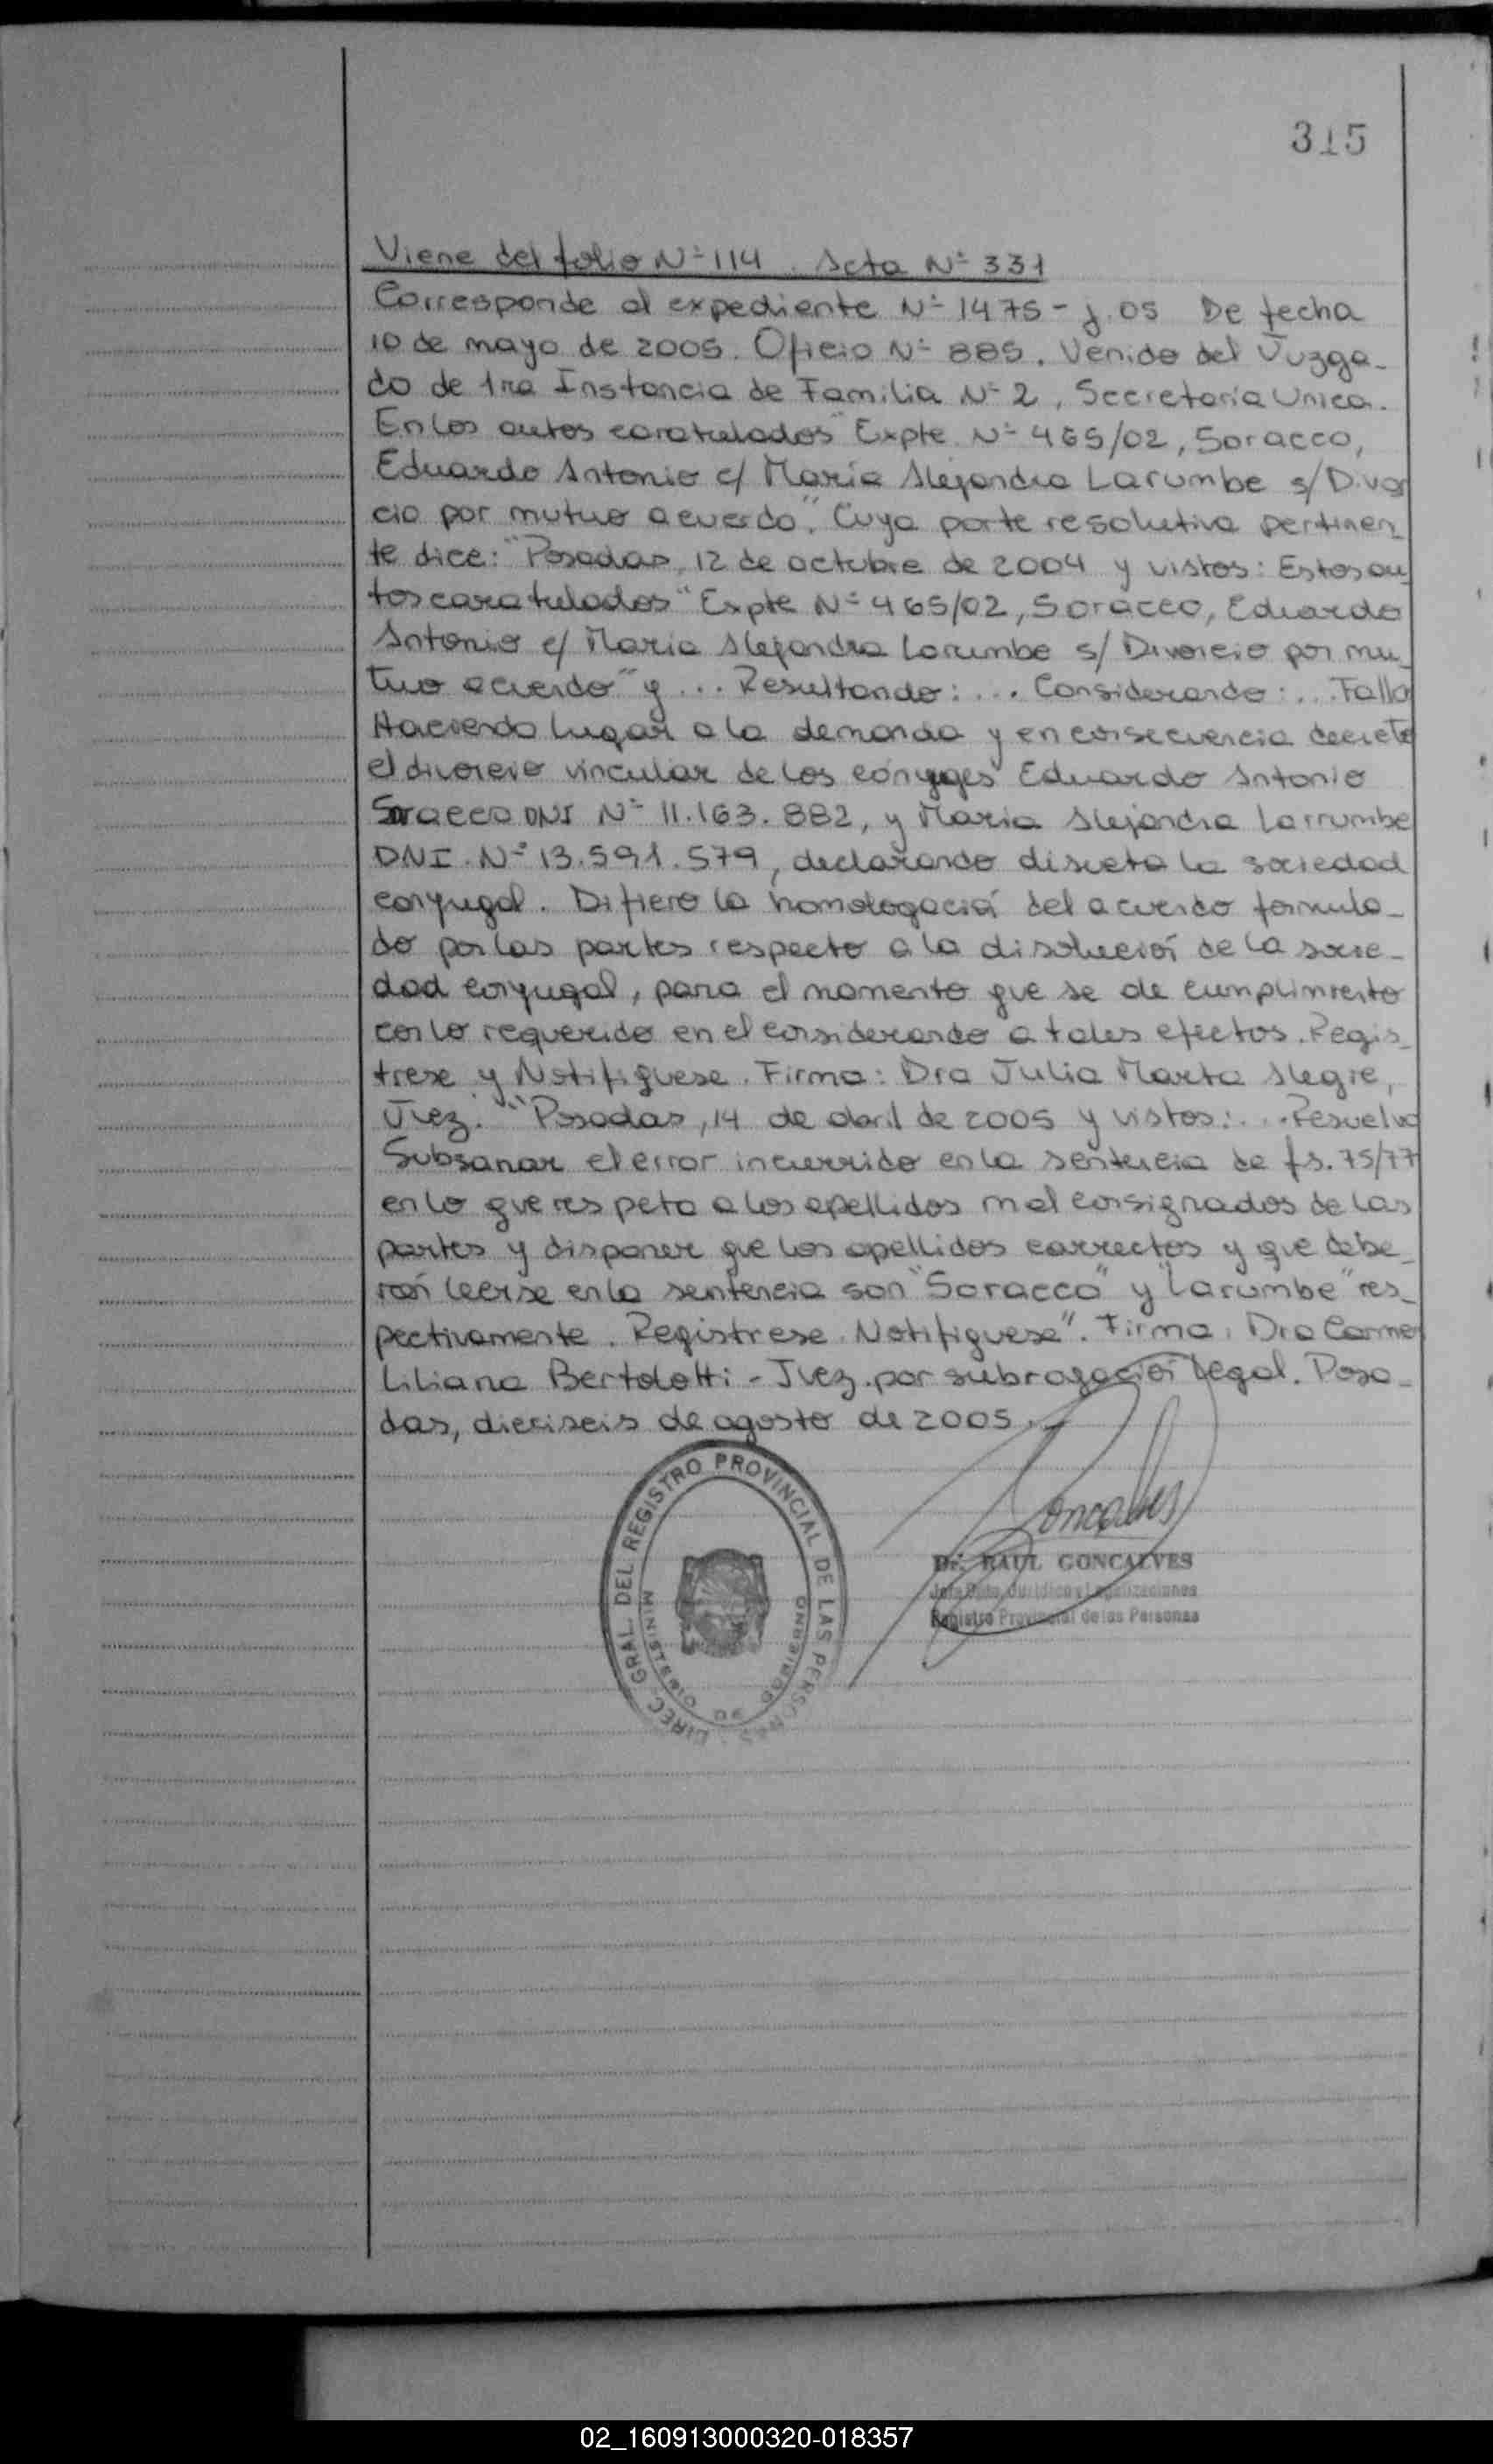 315
Viene del folio Nº 114. Acta Nº 331
Corresponde al expediente Nº 1475-J.05 De fecha
10 de mayo de 2005. Oficio Nº 885. Venido del Juzga-
do de 1ra Instancia de Familia Nº 2, Secretaría Unica.
En los autos caratulados "Expte Nº 465/02, Soracco,
Eduardo Antonio c/ María Alejandra Larumbe s/ Divor
cio por mutuo acuerdo". Cuya parte resolutiva pertinen_
te dice: "Posadas, 12 de octubre de 2004 y vistos: Estos au_
tos caratulados "Expte Nº 465/02, Soracco, Eduardo
Antonio c/ Maria Alejandra Larumbe s/ Divorcio por mu_
tuo acuerdo" y ... Resultando: ... Considerando: ... Fallo
Haciendo lugar a la demanda y en consecuencia decreto
el divorcio vincular de los cónyuges Eduardo Antonio
Soracco DNI Nº 11.163.882, y Maria Alejandra Larrumbe
DNI Nº 13.591.579, declarando disueta la sociedad
conyugal. Difiero la homologació del acuerdo formula-
do por las partes respecto a la disolució de la socie-
dad conyugal, para el momento que se de cumplimiento
con lo requerido en el considerando a tales efectos. Regis_
trese y Notifiquese. Firma: Dra Julia Marta Alegre,
Juez." "Posadas, 14 de abril de 2005 y vistos: ... Resuelvo
Subsanar el error incurrido en la sentencia de fs. 75/77
en lo que respeta a los apellidos mal consignados de las
partes y disponer que los apellidos correctos y que debe_
rán leerse en la sentencia son "Soracco" y "Larumbe" res_
pectivamente. Registrese. Notifiquese". Firma: Dra Carmen
Liliana Bertolotti - Juez por subrogació legal. Posa_
das, dieciseis de agosto de 2005.
DIREC. GRAL. DEL REGISTRO PROVINCIAL DE LAS PERSONAS
MINISTERIO DE GOBIERNO
Goncalves
Dr. RAUL GONCALVES
Jefe Dpto. Jurídico y Legalizaciones
Registro Provincial de las Personas
02_160913000320-018357